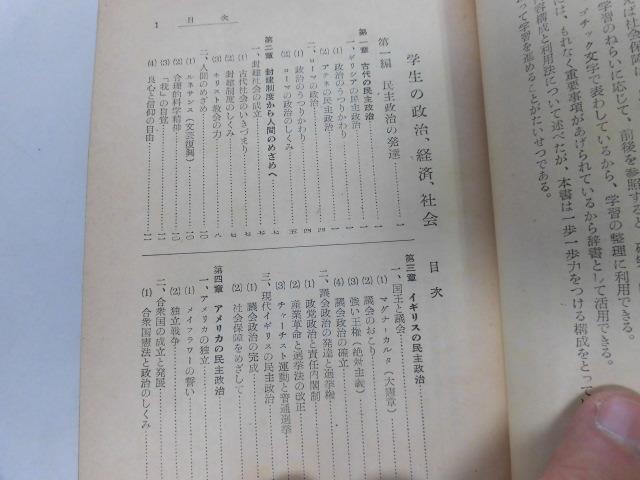 参照すると、
学習のねらいに応じて、前後を
ゴチック文字で表わしているから、学習の整理に利用できる。
は、もれなく重要事項があげられているから辞書として活用できる。
容構成と利用法について述べたが、本書は一歩一歩力をつける構成をとって
って学習を進めることがたいせつである。
学生の政治、経済、社会
目次
第一編 民主政治の発達…………一
第一章 古代の民主政治
一、ギリシアの民主政治…………一
(1) 政治のうつりかわり…………一
(2) アテネの民主政治…………一
二、ローマの政治…………四
(1) 政治のうつりかわり…………四
(2) ローマの政治のしくみ…………五
第二章 封建制度から人間のめざめへ…………七
一、封建社会の成立…………七
(1) 古代社会のいきづまり…………七
(2) 封建制度のしくみ…………七
(3) キリスト教会の力…………八
二、人間のめざめ…………一〇
(1) ルネサンス(文芸復興)…………一〇
(2) 合理的科学精神…………一〇
(3) 「我」の自覚…………一一
(4) 良心と信仰の自由…………一一
第三章 イギリスの民主政治
一、国王と議会…………
(1) マグナ=カルタ(大憲章)…………
(2) 議会のおこり…………
(3) 強い王権(絶対主義)…………
(4) 議会政治の確立…………
二、議会政治の発達と選挙権…………
(1) 政党政治と責任内閣制…………
(2) 産業革命と選挙法の改正…………
(3) チャーチスト運動と普通選挙…………
三、現代イギリスの民主政治…………
(1) 議会政治の完成…………
(2) 社会保障をめざして…………
第四章 アメリカの民主政治
一、アメリカの独立…………
(1) メイフラワーの誓い…………
(2) 独立戦争…………
二、合衆国の成立と発展…………
(1) 合衆国憲法と政治のしくみ…………
目次
1